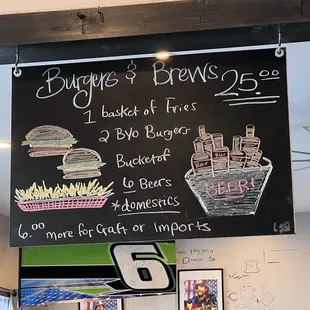 Burgers & Brews 25.00
1 basket of Fries
2 BYO Burgers
Bucket of
6 Beers
*domestics
BEER!
6.00 more for Craft or Imports
6